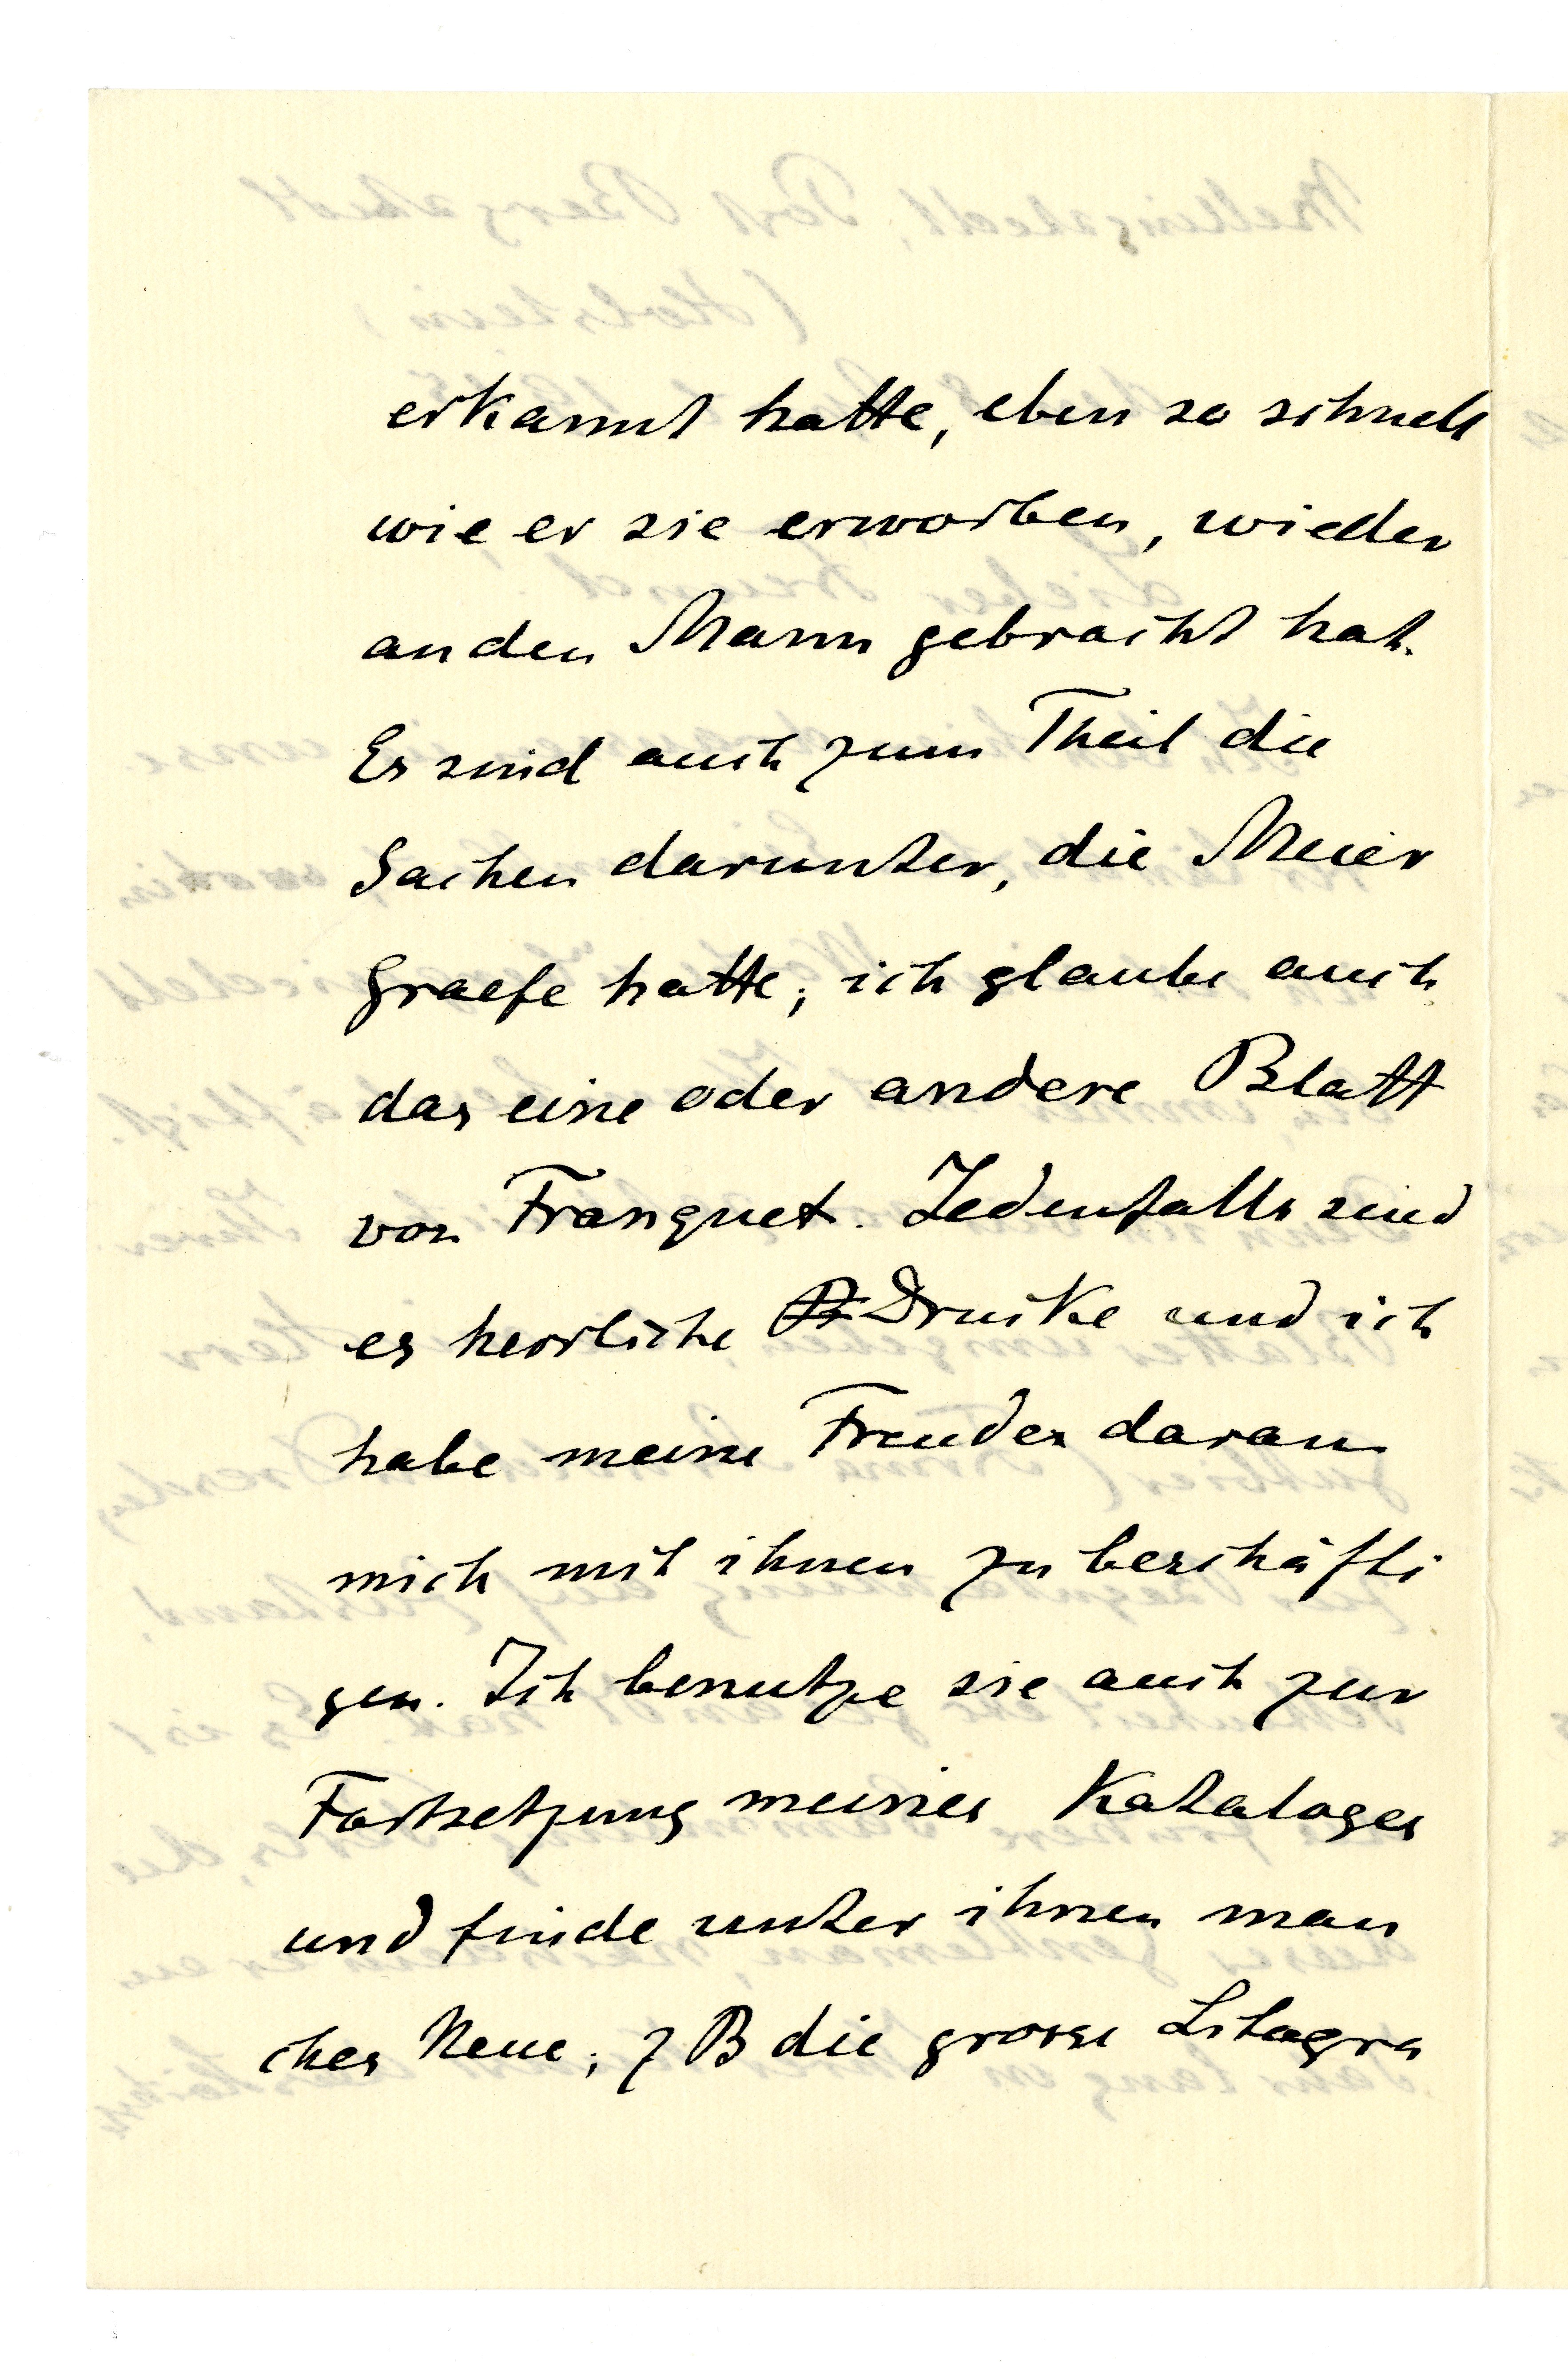 erkannt hatte, eben so schnell
wie er sie erworben, wieder
an den Mann gebracht hat.
Es sind auch zum Theil die
Sachen darunter, die Meier
Graefe hatte; ich glaube auch
das eine oder andere Blatt
von Franquet. Jedenfalls sind
es herrliche Drucke und ich
habe meine Freuden daran
mich mit ihnen zu beschäfti
gen. Ich benutze sie auch zur
Fortsetzung meines Kataloges
und finde unter ihnen man
ches Neue; z B die grosse Litogra